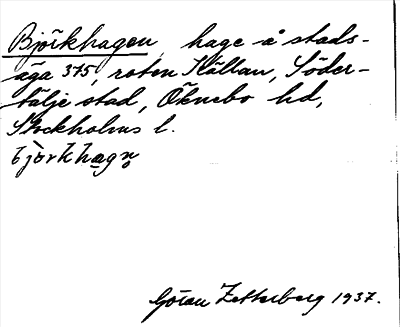 Björkhagen, hage å stads-
äga 375, roten Källan, Söder-
tälje stad, Öknebo hd,
Stockholms l.
bjòrkhagn̥
Göran Zetterberg 1937.